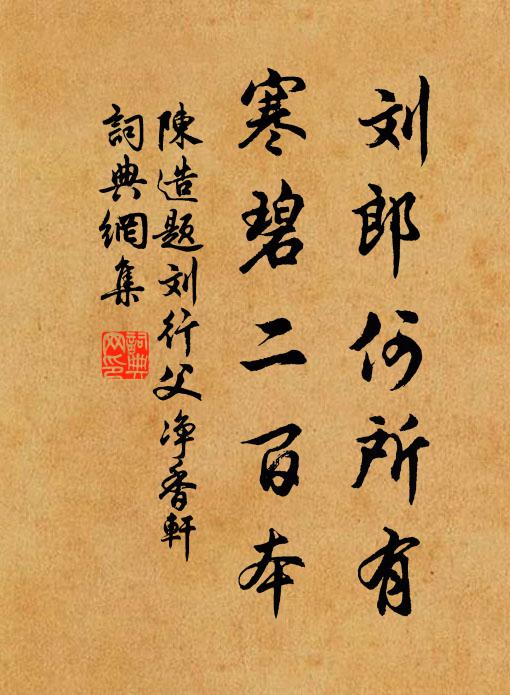 刘郎何所有
寒碧二百本
陳造题刘行父净香軒
詞典網集
詞典網印